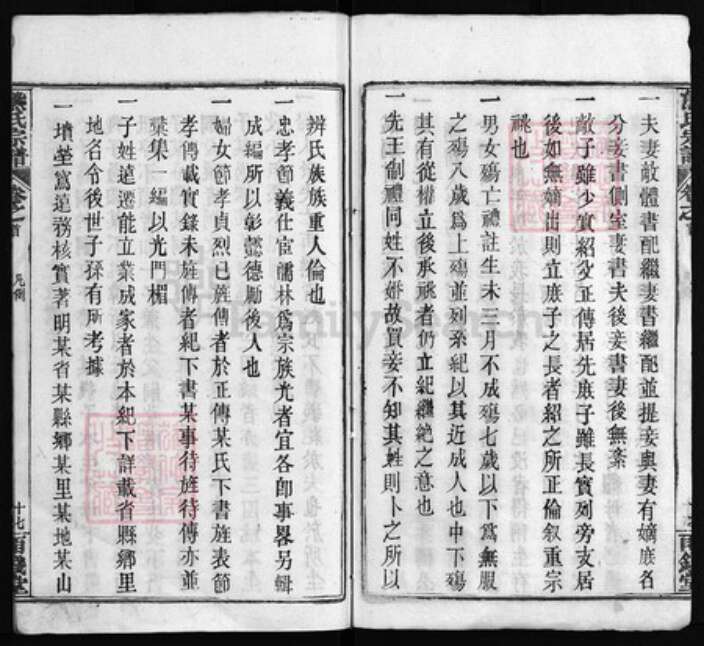 一夫妻敵體書配繼妻書繼配並提妾與妻有嫡庶名
分妾書側室妾書夫後妾書妻後無紊
一敵子雖少實紹父正傳居先庶子雖長實列旁支居
後如無嫡出則立庶子之長者紹之所正倫叙重宗
祧也
一男女殤亡禮註生未三月不成殤七歲以下為無服
之殤八歲為上殤並列系紀以其近成人也中下殤
其有從權立後承祧者仍立紀繼絶之意也
一先王制禮同姓不婚故買妾不知其姓則卜之所以
辨氏族族重人倫也
一忠孝節義仕宦儒林為宗族光者宜各卽事畧另輯
成編所以彰懿德勵後人也
一婦女節孝貞烈已旌傳者於正傳某氏下書旌表節
孝傳載實錄未旌傳者紀下書某事待旌待傳亦並
彙集一編以光門楣
一子姓遠遷能立業成家者於本紀下詳載省縣鄉里
地名令後世子孫有所考據
一墳塋窵遠務核實著明某省某縣鄉某里某地某山
氏宗譜
卷之首
凡例
十七